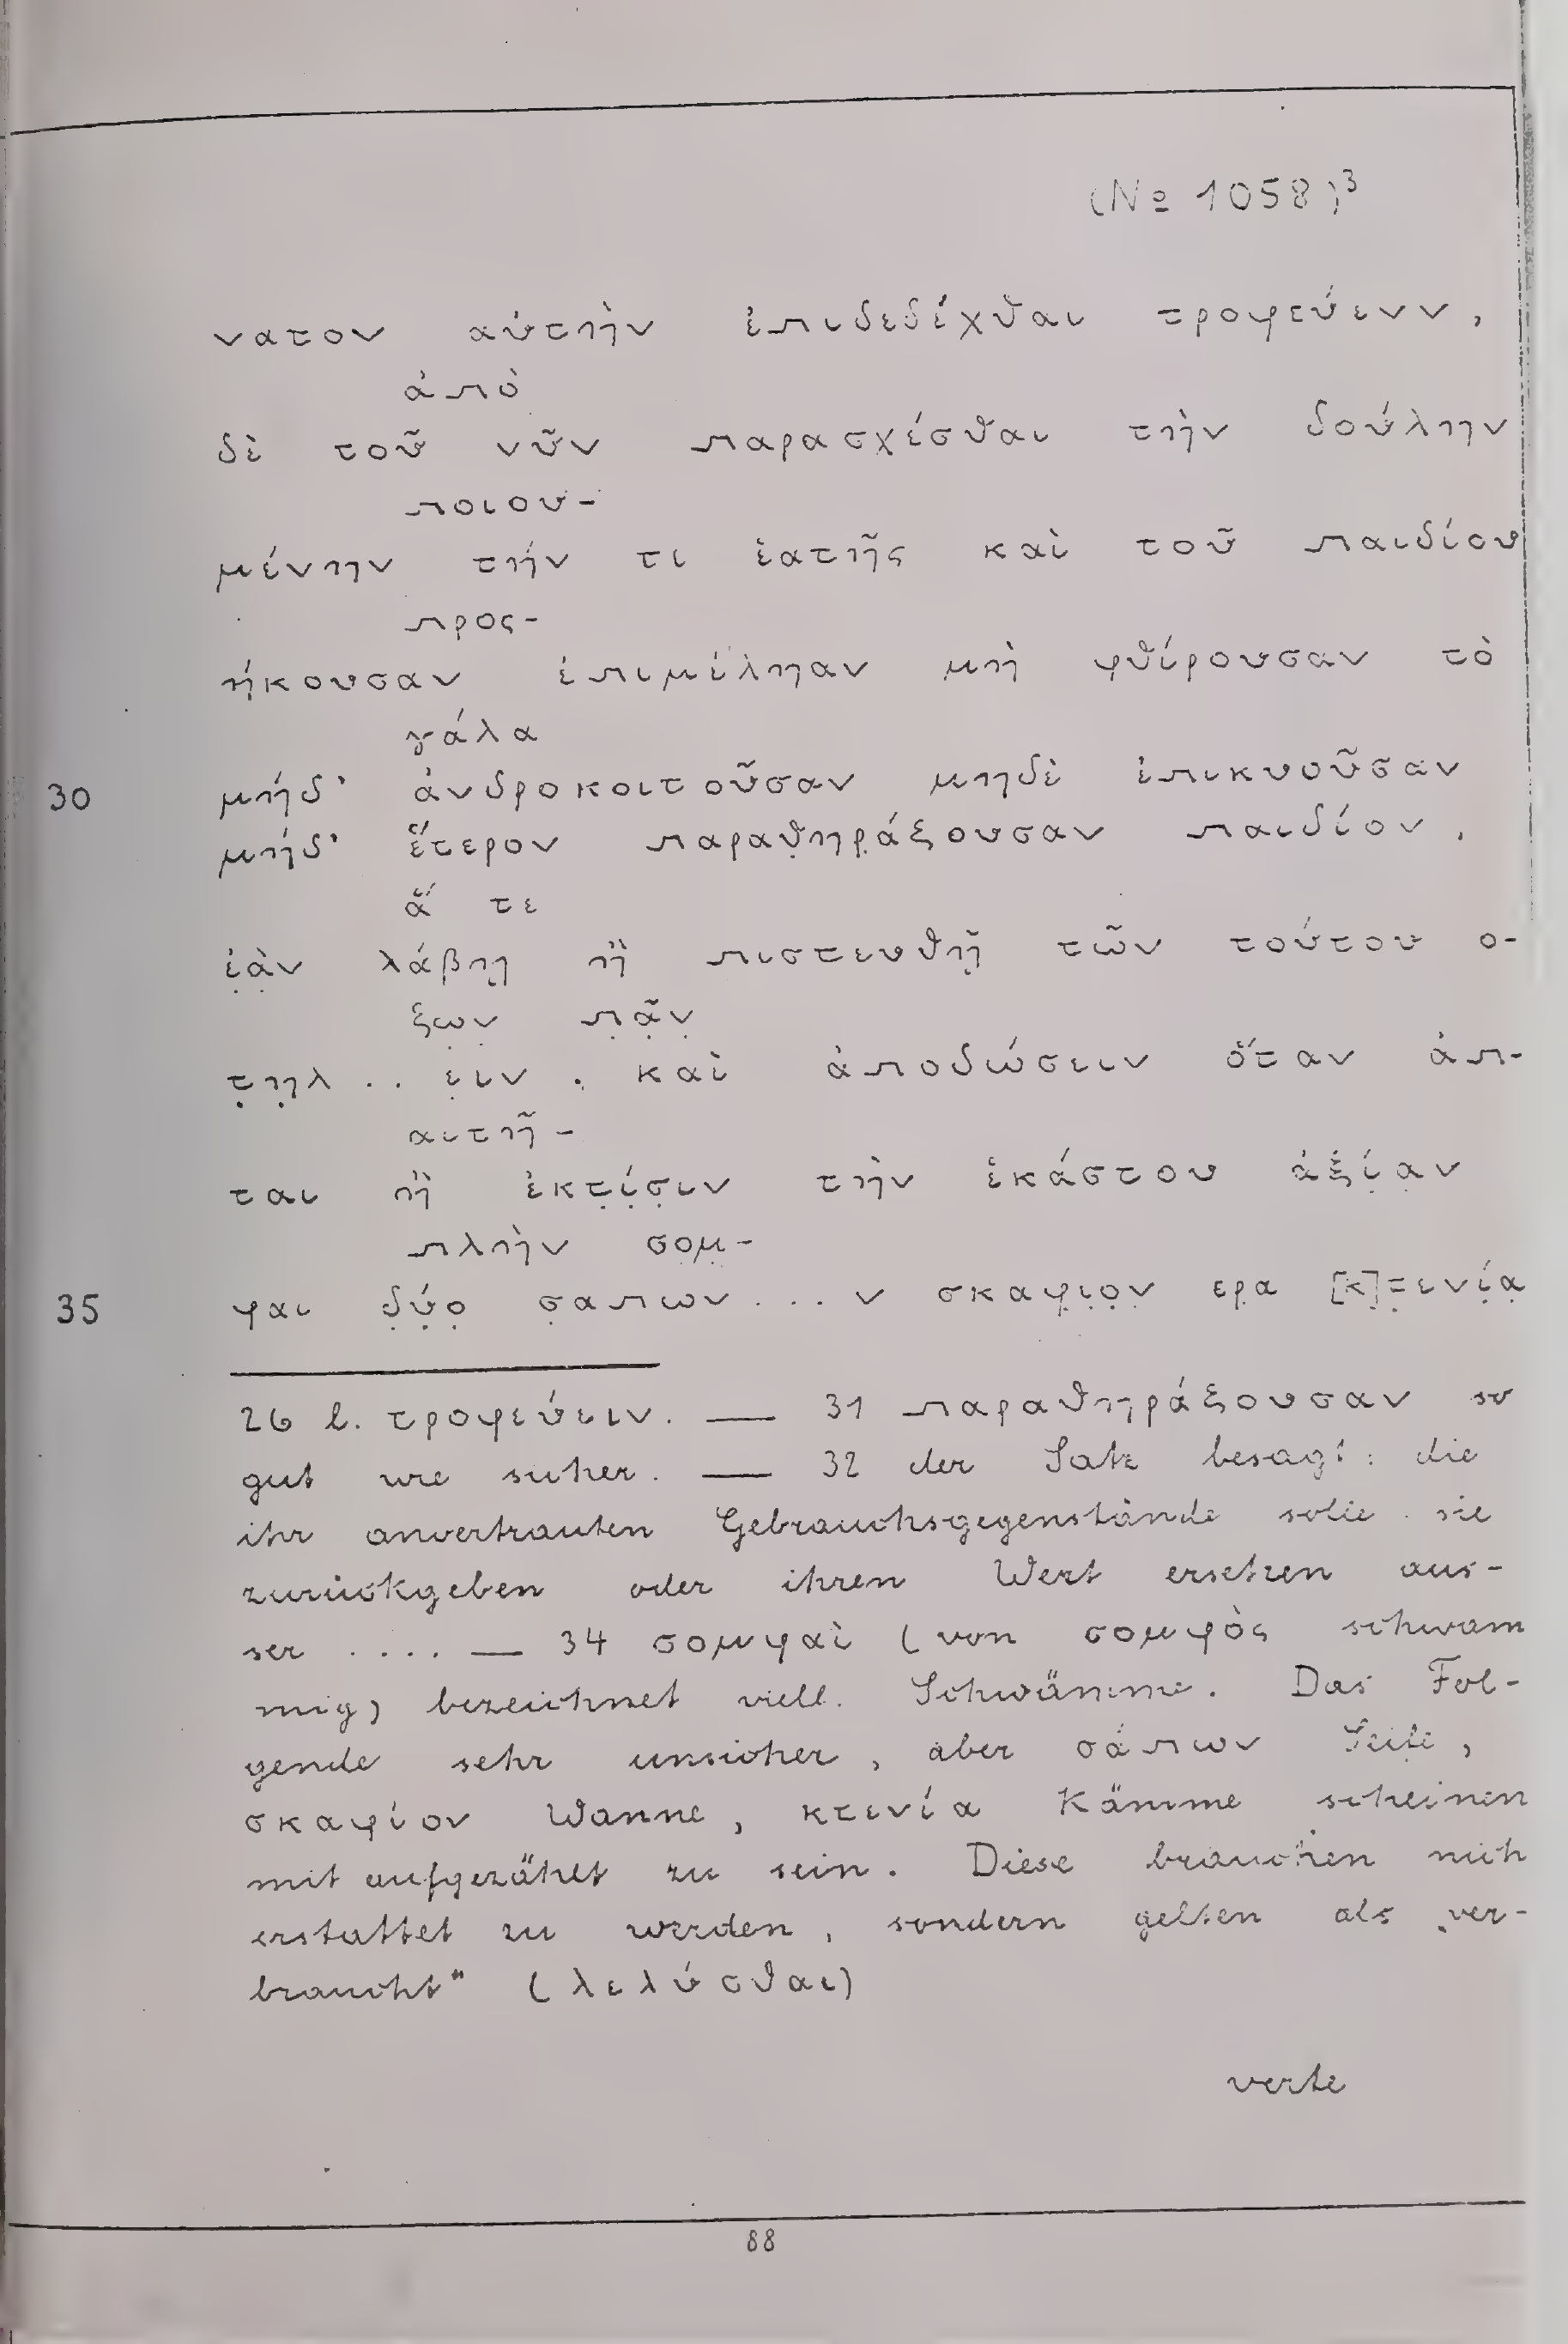 (No 1058)³
νατον αὐτὴν ἐπιδεδέχθαι τροφεύενν,
ἀπὸ
δὲ τοῦ νῦν παρασχέσθαι τὴν δούλην
ποιου-
μένην τήν τι ἑατῆς καὶ τοῦ παιδίου
προς-
ήκουσαν ἐπιμέληαν μὴ φθίρουσαν τὸ
γάλα
30 μήδ' ἀνδροκοιτοῦσαν μηδὲ ἐπικυοῦσαν
μήδ' ἕτερον παραθ̣ηρ̣άξουσαν παιδίον,
ἅ τε
ἐ̣ὰ̣ν λάβῃ ἢ πιστευθῇ τῶν τούτου ο-
ξω̣ν̣ π̣ᾶ̣ν̣
τ̣η̣λ̣ .. ε̣ιν . καὶ ἀποδώσειν ὅταν ἀπ-
αιτῆ-
ται ἢ ἐκτ̣ί̣σ̣ιν τὴν ἑκάστου ἀξί̣α̣ν
πλὴν σομ̣-
35 φαι δ̣ύ̣ο̣ σ̣απιων ... ν σκαφ̣ι̣ο̣ν ερ̣α [κ]τ̣ενί̣α̣
26 l. τροφεύειν. — 31 παραθηράξουσαν so
gut wie sicher. — 32 der Satz besagt: die
ihr anvertrauten Gebrauchsgegenstände solle sie
zurückgeben oder ihren Wert ersetzen aus-
ser .... — 34 σομφαὶ (von σομφὸς schwam
mig) bezeichnet viell. Schwämme. Das Fol-
gende sehr unsicher, aber σάπων Seife,
σκαφίον Wanne, κτενία Kämme scheinen
mit aufgezählt zu sein. Diese brauchen nich
erstattet zu werden, sondern gelten als „ver-
braucht" (λελύσθαι)
verte
88